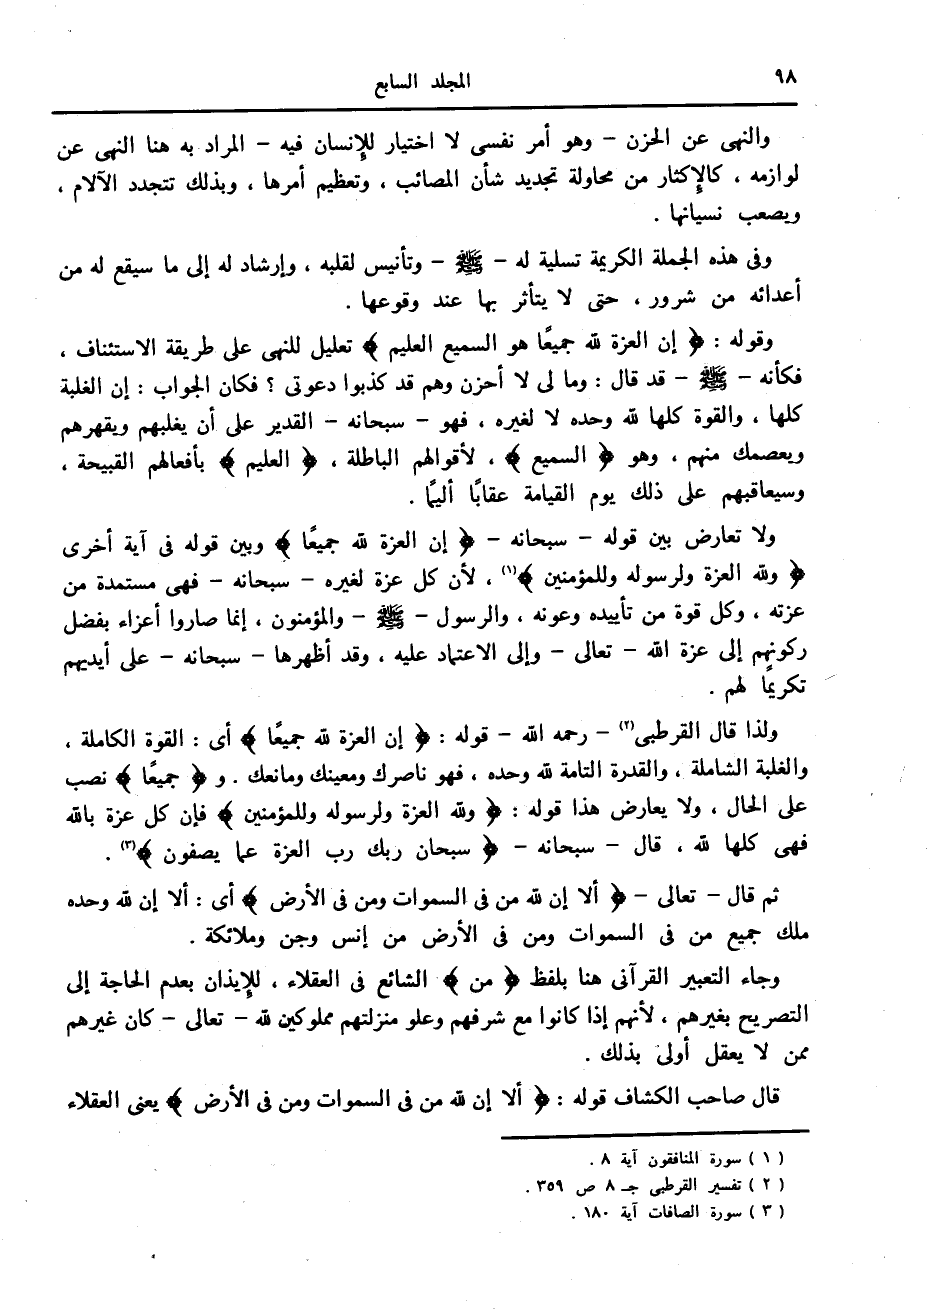 ٩٨
المجلد السابع
والنهى عن الحزن – وهو أمر نفسى لا اختيار للإنسان فيه – المراد به هنا النهى عن
لوازمه ، كالإكثار من محاولة تجديد شأن المصائب ، وتعظيم أمرها ، وبذلك تتجدد الآلام ،
ويصعب نسيانها .
وفى هذه الجملة الكريمة تسلية له – ﷺ – وتأنيس لقلبه ، وإرشاد له إلى ما سيقع له من
أعدائه من شرور ، حتى لا يتأثر بها عند وقوعها .
وقوله : ﴿ إن العزة لله جميعًا هو السميع العليم ﴾ تعليل للنهى على طريقة الاستئناف ،
فكأنه – ﷺ – قد قال : وما لى لا أحزن وهم قد كذبوا دعوتى ؟ فكان الجواب : إن الغلبة
كلها ، والقوة كلها لله وحده لا لغيره ، فهو – سبحانه – القدير على أن يغلبهم ويقهرهم
ويعصمك منهم ، وهو ﴿ السميع ﴾ ، لأقوالهم الباطلة ، ﴿ العليم ﴾ بأفعالهم القبيحة ،
وسيعاقبهم على ذلك يوم القيامة عقابًا أليمًا .
ولا تعارض بين قوله – سبحانه – ﴿ إن العزة لله جميعًا ﴾ وبين قوله فى آية أخرى
﴿ ولله العزة ولرسوله وللمؤمنين ﴾(١) ، لأن كل عزة لغيره – سبحانه – فهى مستمدة من
عزته ، وكل قوة من تأييده وعونه ، والرسول – ﷺ – والمؤمنون ، إنما صاروا أعزاء بفضل
ركونهم إلى عزة الله – تعالى – وإلى الاعتماد عليه ، وقد أظهرها – سبحانه – على أيديهم
تكريمًا لهم .
ولذا قال القرطبى(٢) – رحمه الله – قوله : ﴿ إن العزة لله جميعًا ﴾ أى : القوة الكاملة ،
والغلبة الشاملة ، والقدرة التامة لله وحده ، فهو ناصرك ومعينك ومانعك . و ﴿ جميعًا ﴾ نصب
على الحال ، ولا يعارض هذا قوله : ﴿ ولله العزة ولرسوله وللمؤمنين ﴾ فإن كل عزة بالله
فهى كلها لله ، قال – سبحانه – ﴿ سبحان ربك رب العزة عما يصفون ﴾(٣) .
ثم قال – تعالى – ﴿ ألا إن لله من فى السموات ومن فى الأرض ﴾ أى : ألا إن لله وحده
ملك جميع من فى السموات ومن فى الأرض من إنس وجن وملائكة .
وجاء التعبير القرآنى هنا بلفظ ﴿ من ﴾ الشائع فى العقلاء ، للإيذان بعدم الحاجة إلى
التصريح بغيرهم ، لأنهم إذا كانوا مع شرفهم وعلو منزلتهم مملوكين لله – تعالى – كان غيرهم
ممن لا يعقل أولى بذلك .
قال صاحب الكشاف قوله : ﴿ ألا إن لله من فى السموات ومن فى الأرض ﴾ يعنى العقلاء
( ١ ) سورة المنافقون آية ٨ .
( ٢ ) تفسير القرطبى جـ ٨ ص ٣٥٩ .
( ٣ ) سورة الصافات آية ١٨٠ .